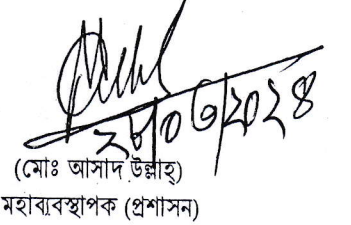 ২৮/০৩/২০২৪
(মোঃ আসাদ উল্লাহ্)
মহাব্যবস্থাপক (প্রশাসন)